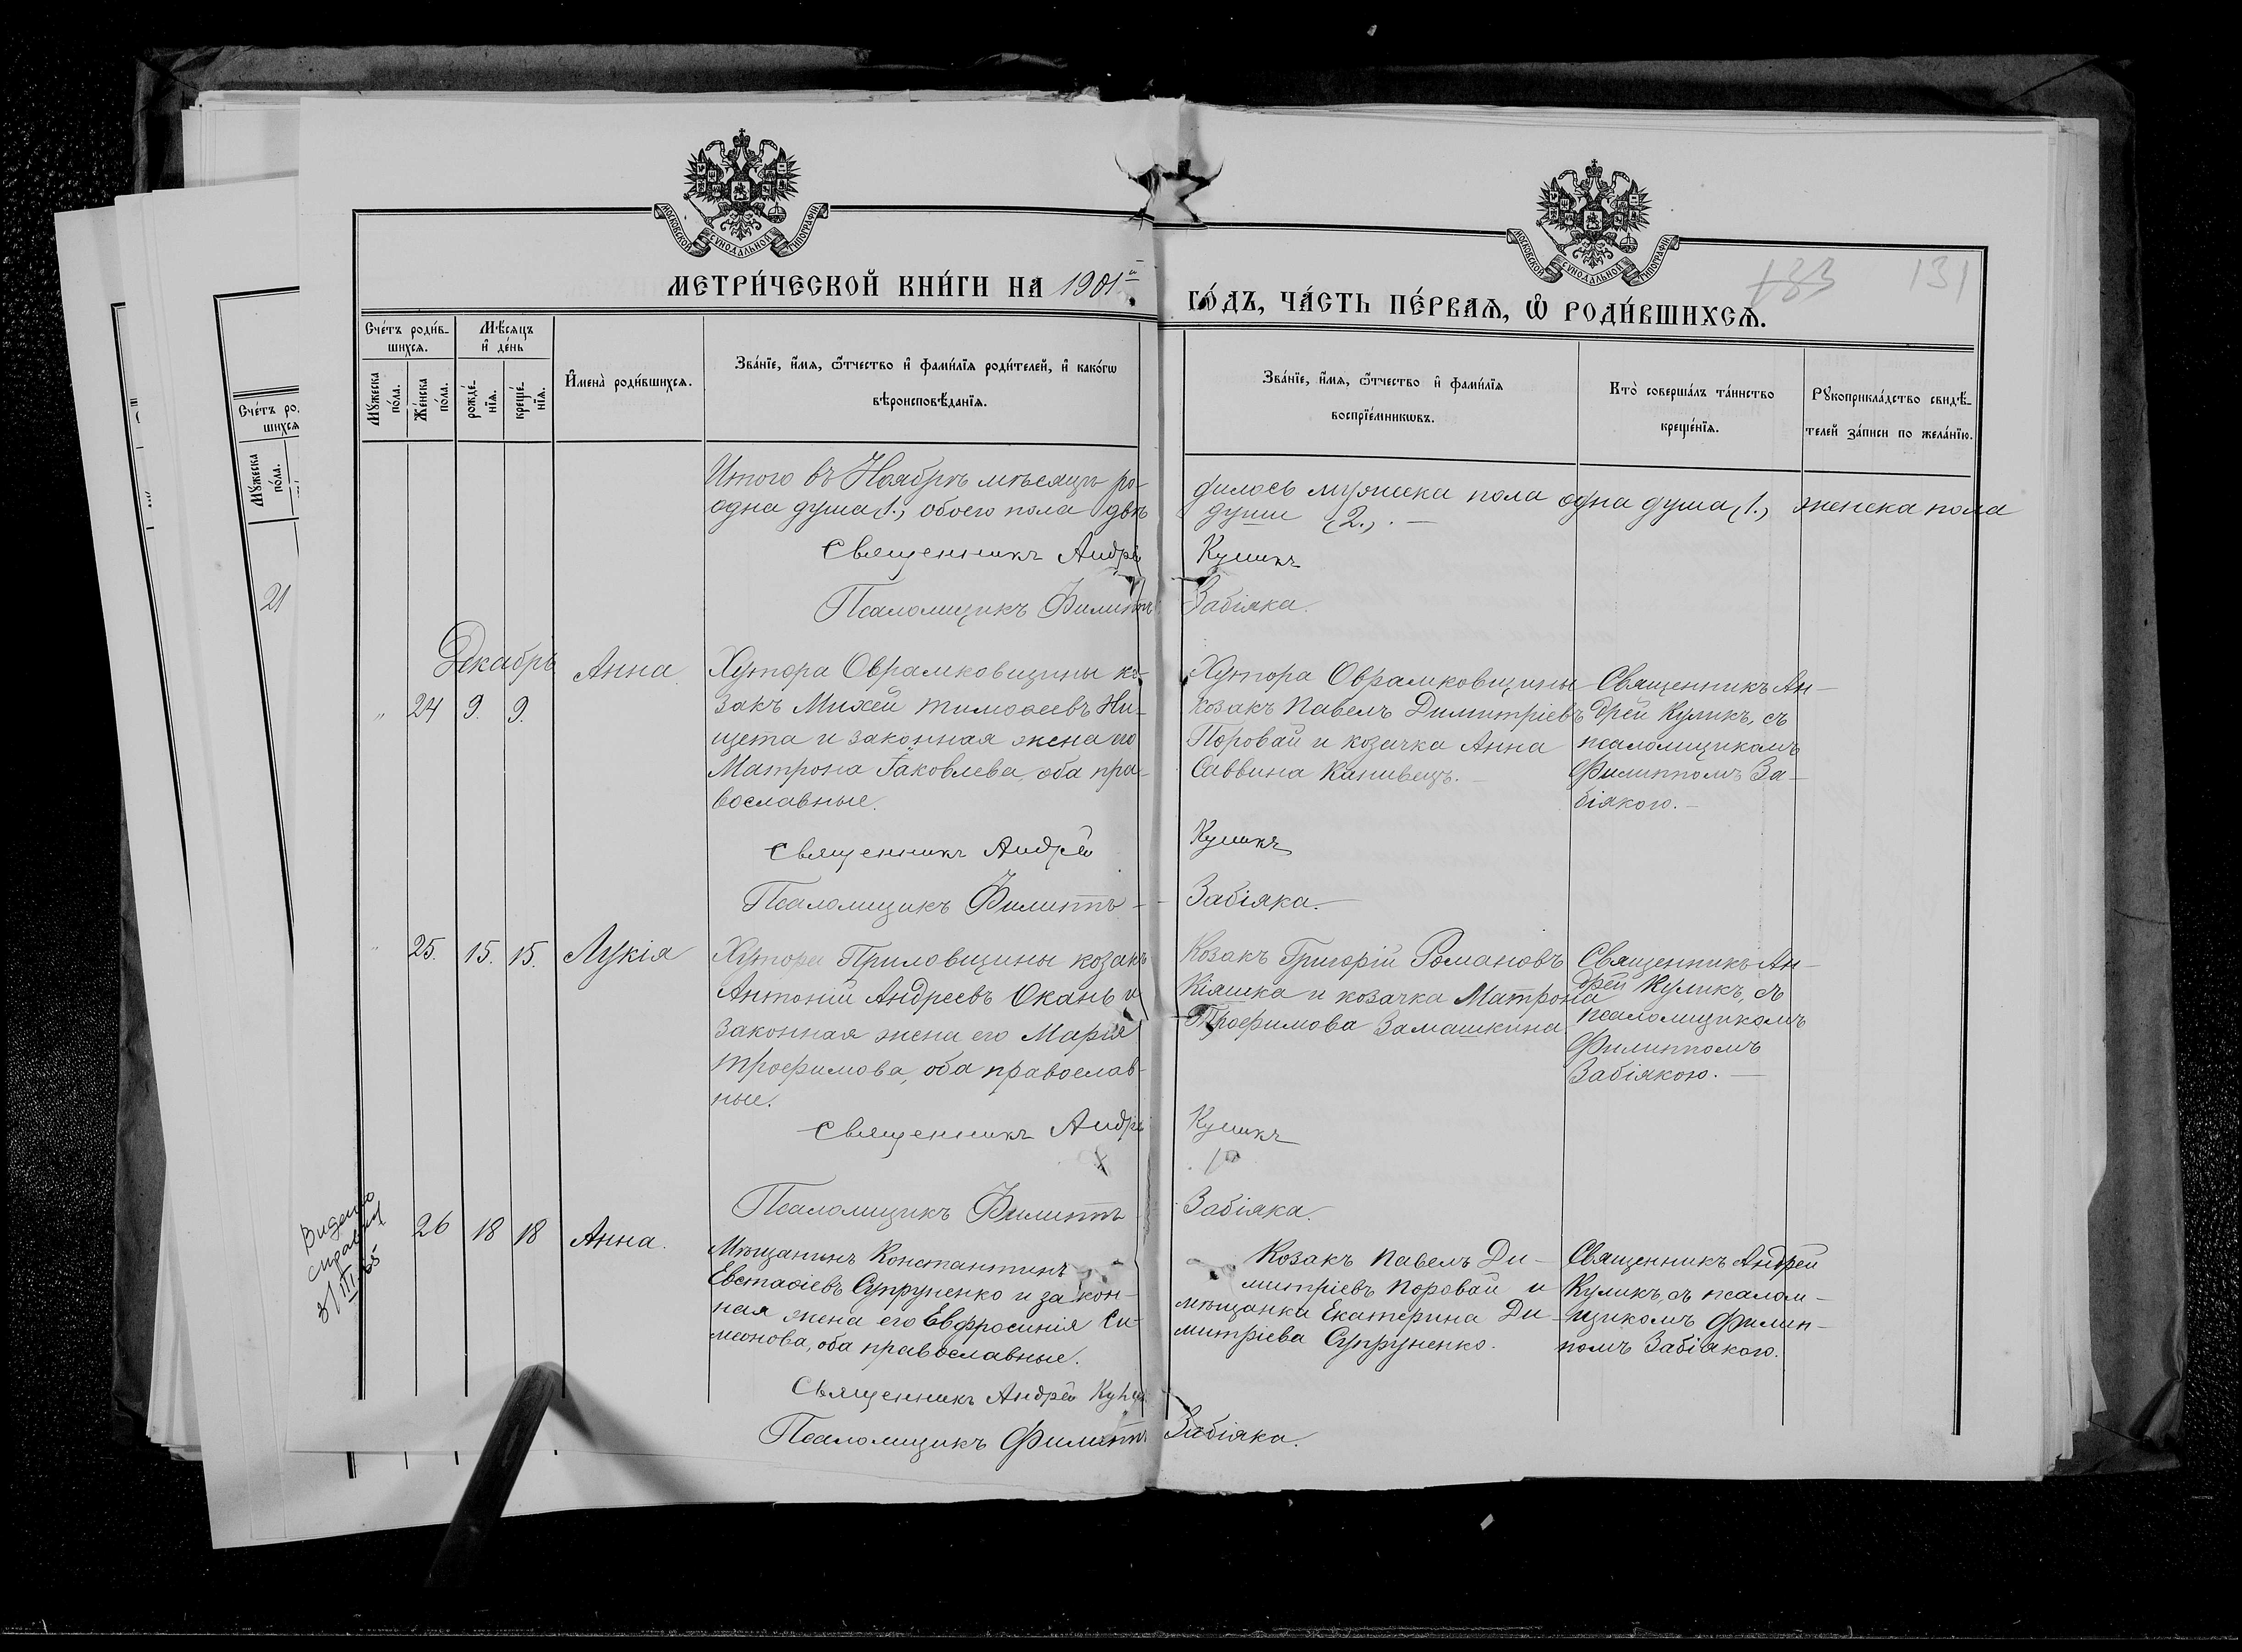 МОСКОВСКОЙ СѴНОДАЛЬНОЙ ТИПОГРАФІИ
МОСКОВСКОЙ СѴНОДАЛЬНОЙ ТИПОГРАФІИ
133 131
МЕТРИ́ЧЕСКОЙ КНИ́ГИ НА 1901й
ГО́ДЪ, ЧА́СТЬ ПЕ́РВАѦ, Ѡ҆ РОДИ́ВШИХСѦ.
Сче́тъ роди́в-
шихсѧ.
Мѣ́сѧцъ
и҆ де́нь
Мꙋ́жеска
по́ла.
Же́нска
по́ла.
рожде́-
нїѧ.
креще́-
нїѧ.
И҆мена̀ роди́вшихсѧ.
Зва́нїе, и҆́мѧ, ѻ҆́тчество и҆ фами́лїѧ роди́телей, и҆ како́гѡ
вѣроисповѣ́данїѧ.
Зва́нїе, и҆́мѧ, ѻ҆́тчество и҆ фами́лїѧ
воспрїе́мникѡвъ.
Кто̀ соверша́лъ та́инство
креще́нїѧ.
Рꙋкоприкла́дство свидѣ́-
телей за́писи по жела́нїю.
Сче́тъ ро
шихсѧ
Мꙋ́жеска
по́ла.
21
Итого въ Ноябрѣ мѣсяцѣ ро-
одна душа (1.), обоего пола двѣ
дилось мужеска пола одна душа (1.), женска пола
души (2.). —
Священникъ Андрей Куликъ
Псаломщикъ Филиппъ Забіяка.
Декабрь
" 24 9. 9.
Анна
Хутора Оврамковщины ко-
закъ Михей Тимоѳеевъ Ни-
щета и законная жена его
Матрона Іаковлева, оба пра-
вославные.
Хутора Оврамковщины
козакъ Павелъ Димитріевъ
Поровай и козачка Анна
Саввина Канивецъ. —
Священникъ Ан-
дрей Куликъ, съ
псаломщикомъ
Филиппомъ За-
біякою. —
Священникъ Андрей Куликъ
Псаломщикъ Филиппъ — Забіяка. —
" 25. 15. 15.
Лукія
Хутора Приловщины козакъ
Антоній Андреевъ Окань и
законная жена его Марія
Трофимова, оба православ-
ные.
Козакъ Григорій Романовъ
Кіяшка и козачка Матрона
Трофимова Замашкина
Священникъ Ан-
дрей Куликъ, съ
псаломщикомъ
Филиппомъ
Забіякою. —
Священникъ Андрей Куликъ
Псаломщикъ Филиппъ Забіяка.
Видано
справку
3/III 65
26 18 18
Анна.
Мѣщанинъ Константинъ
Евстаѳіевъ Супруненко и закон-
ная жена его Евфросинія Си-
меонова, оба православные.
Козакъ Павелъ Ди-
митріевъ Поровай и
мѣщанка Екатерина Ди-
митріева Супруненко.
Священникъ Андрей
Куликъ, съ псалом-
щикомъ Филип-
помъ Забіякою.
Священникъ Андрей Куликъ
Псаломщикъ Филиппъ Забіяка.